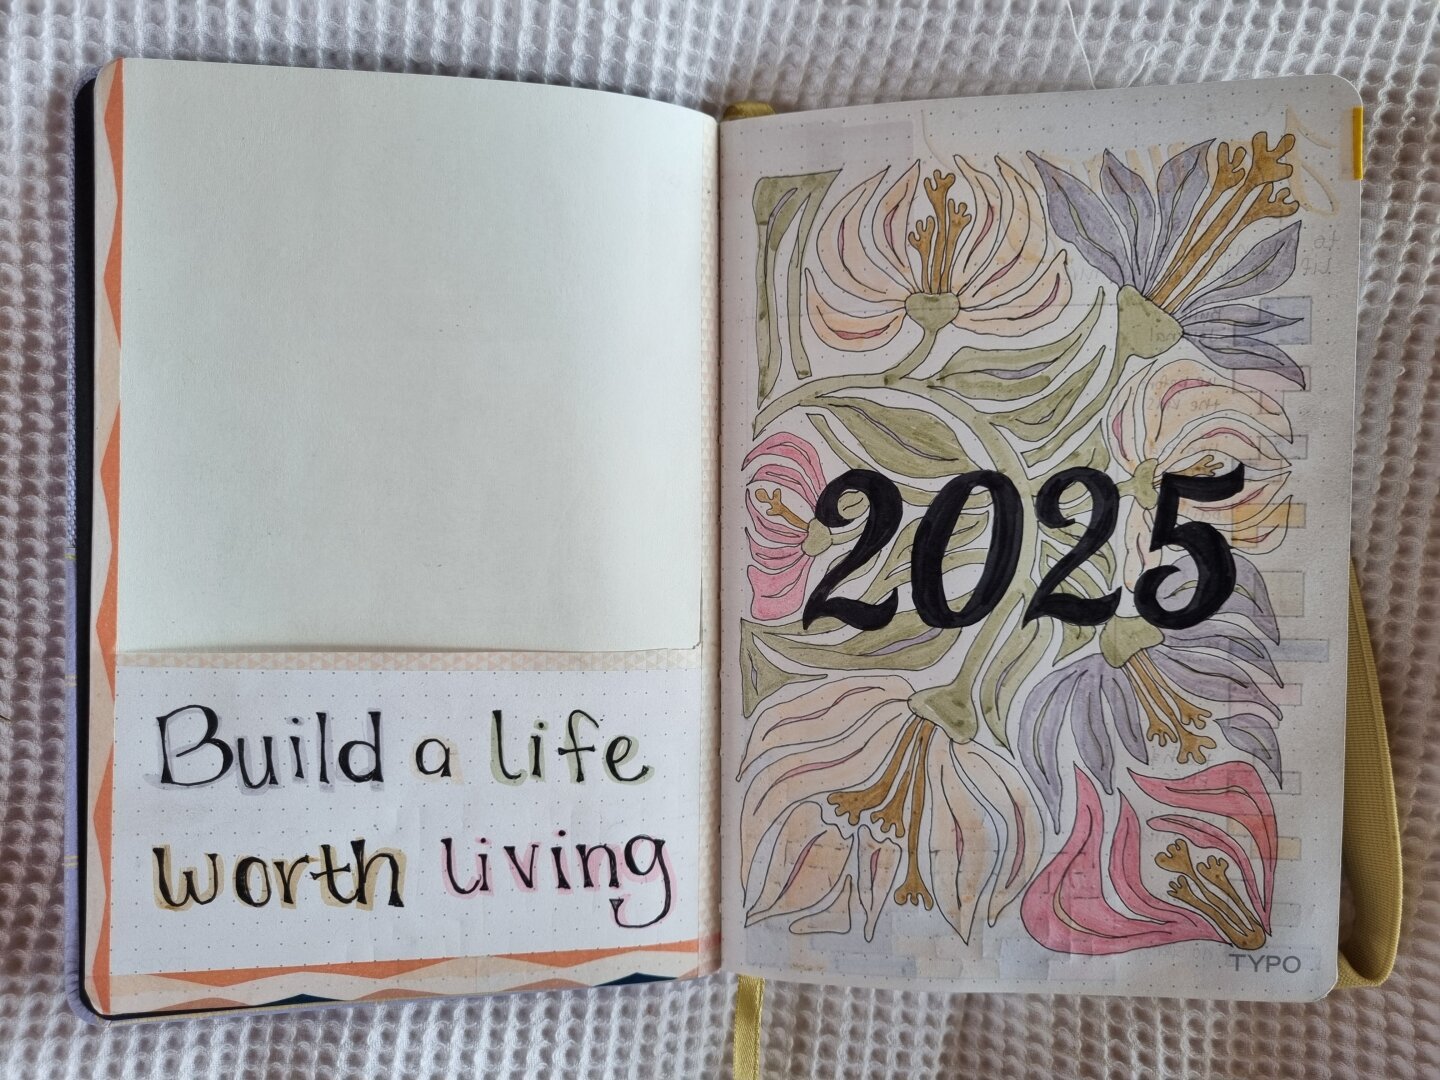 Build a life
worth living
2025
TYPO